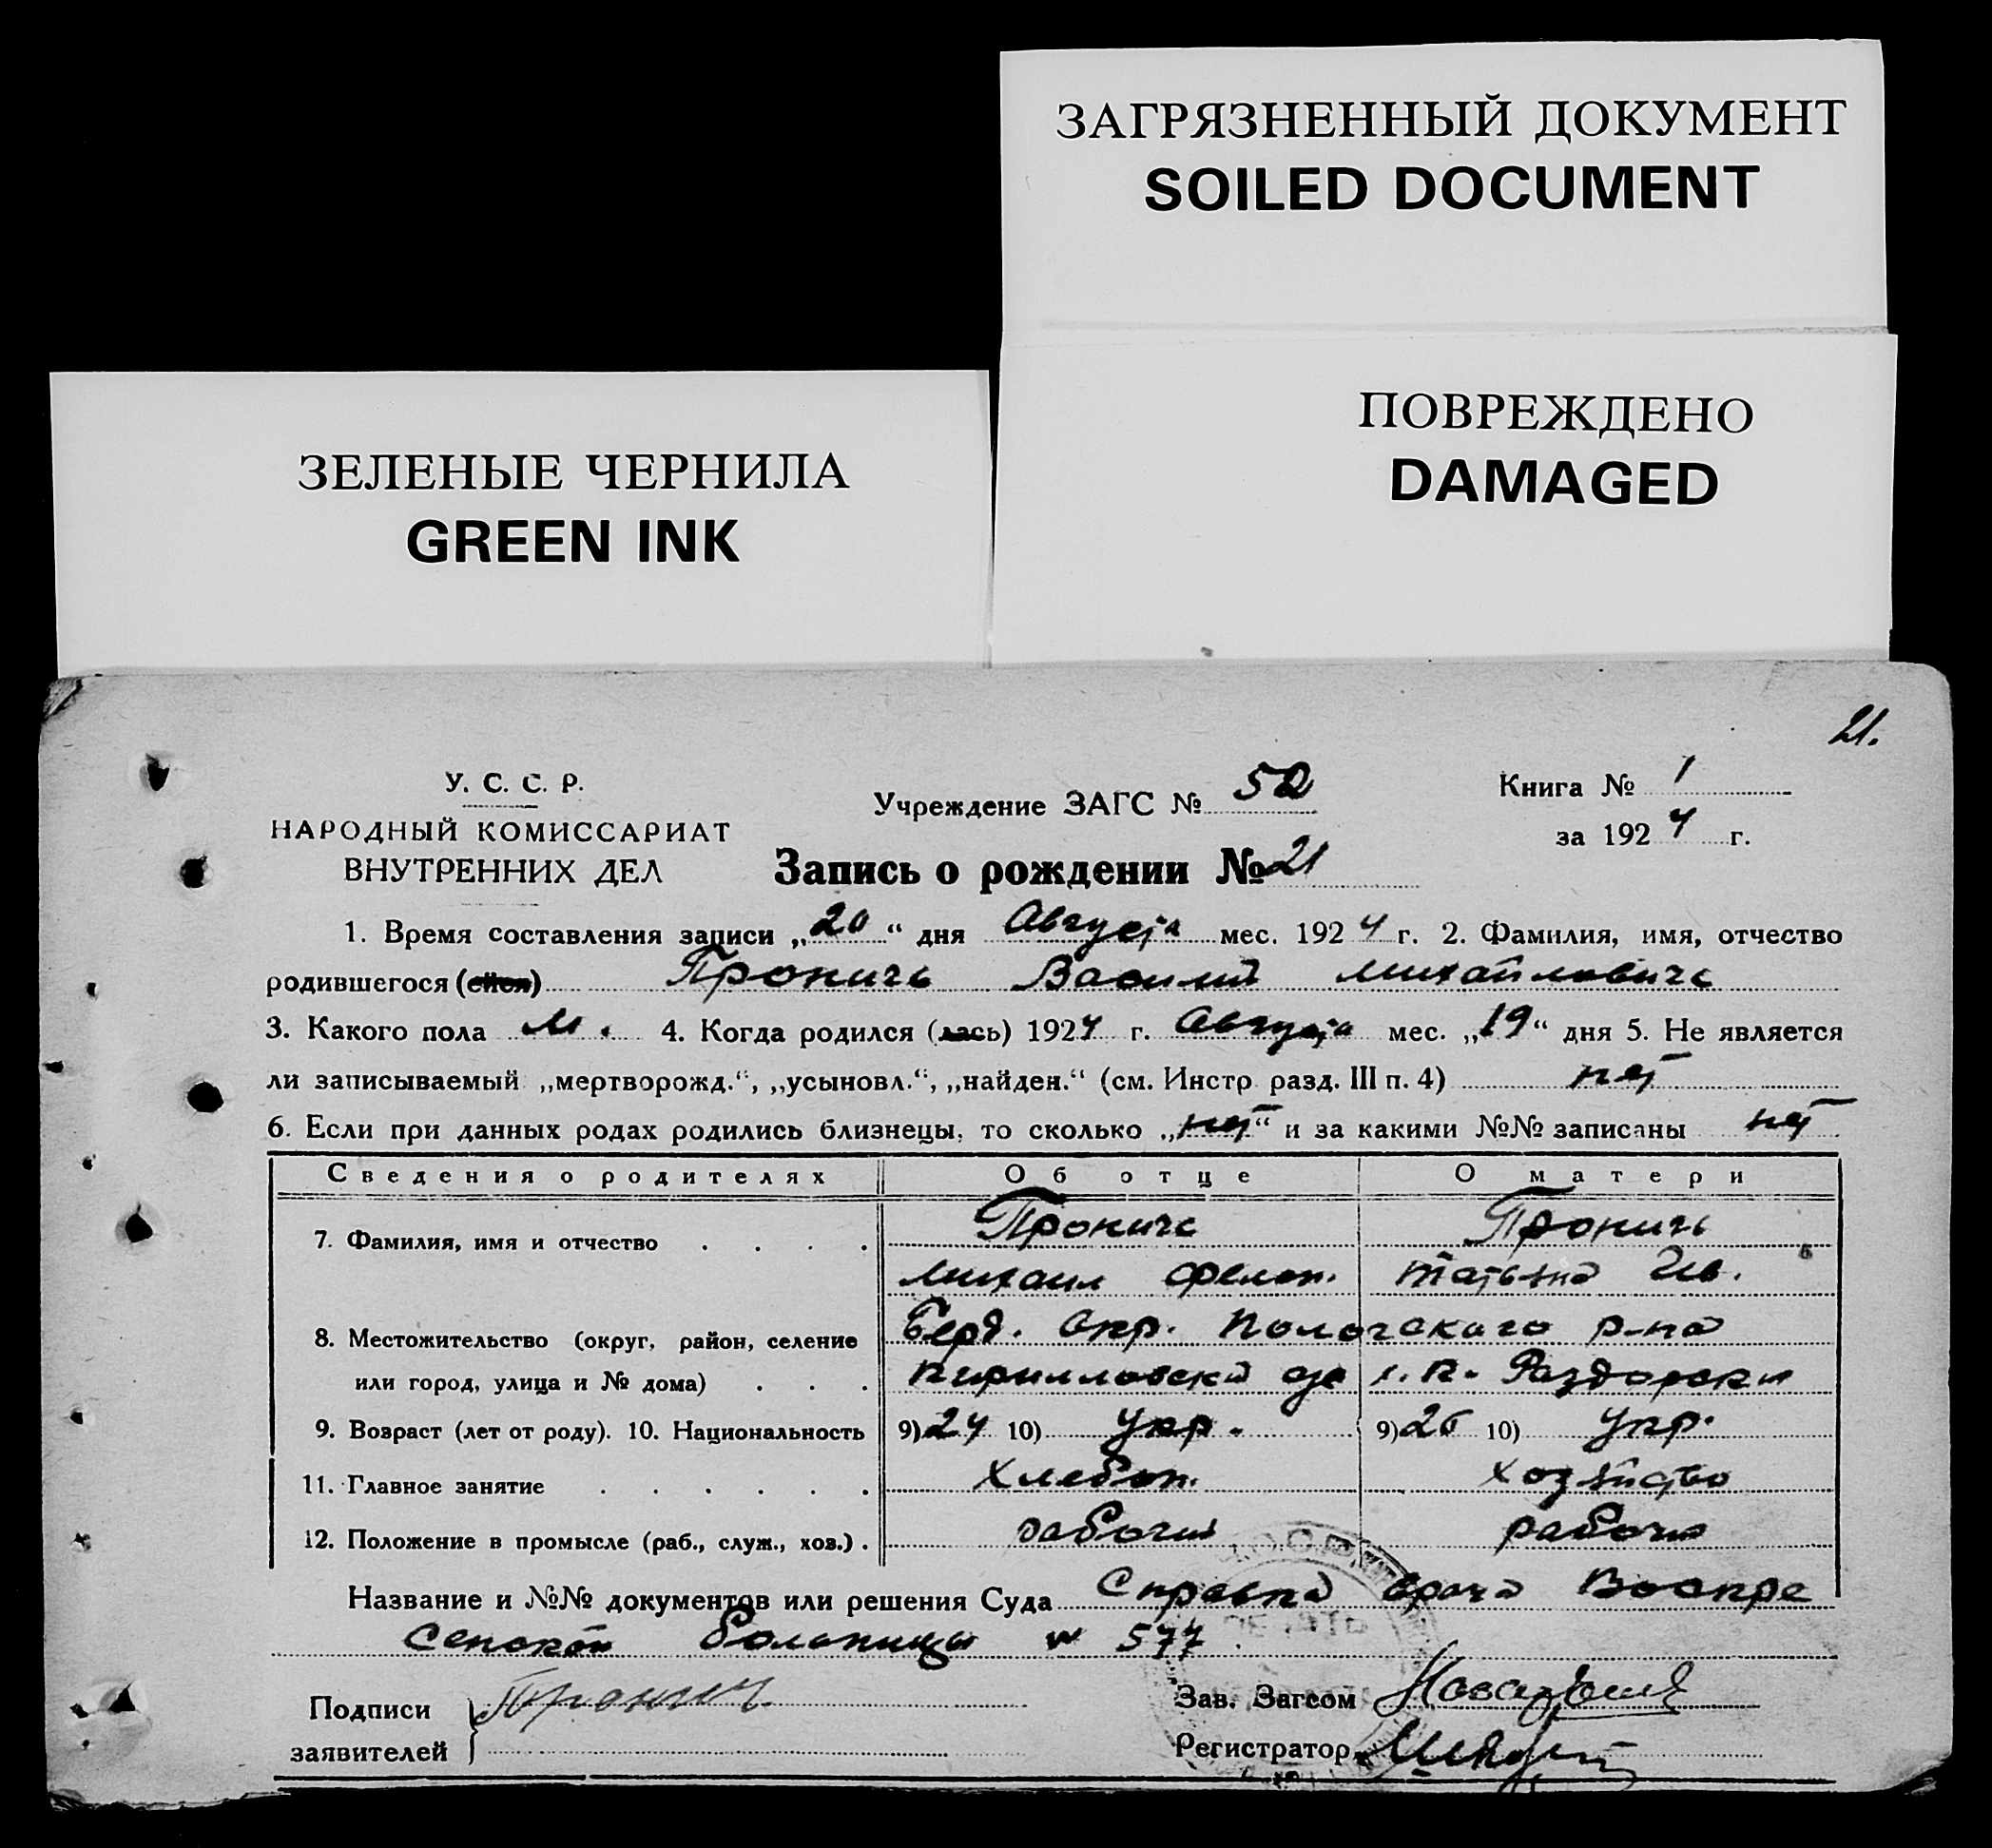 ЗАГРЯЗНЕННЫЙ ДОКУМЕНТ
SOILED DOCUMENT
ПОВРЕЖДЕНО
DAMAGED
ЗЕЛЕНЫЕ ЧЕРНИЛА
GREEN INK
21.
У. С. С. Р.
НАРОДНЫЙ КОМИССАРИАТ
ВНУТРЕННИХ ДЕЛ
Учреждение ЗАГС № 52
Книга № 1
за 1924 г.
Запись о рождении № 21
1. Время составления записи „20“ дня Августа мес. 1924 г. 2. Фамилия, имя, отчество
родившегося (ейся) Проничь Василий Михайловичь
3. Какого пола М. 4. Когда родился (лась) 1924 г. Августа мес. „19“ дня 5. Не является
ли записываемый „мертворожд.“, „усыновл.“, „найден.“ (см. Инстр. разд. III п. 4) нет
6. Если при данных родах родились близнецы, то сколько „нет“ и за какими №№ записаны нет
Сведения о родителях Об отце О матери
7. Фамилия, имя и отчество Проничь Проничь
Михаил Татьяна Ив.
8. Местожительство (округ, район, селение Берд. Окр. Пологскаго р-на
или город, улица и № дома) Кирилловски
9. Возраст (лет от роду). 10. Национальность 9) 24 10) Укр. 9) 10) Укр.
11. Главное занятие Хлебоп. хозяйство
12. Положение в промысле (раб., служ., хоз.) рабочий рабочий
Название и №№ документов или решения Суда Справка врача Воскре
сенской больницы № 577
Подписи
заявителей
Пронич
Зав. Загсом
Регистратор